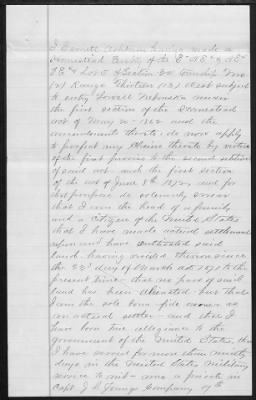 I Emmett having made a
Homestead Entry of the E½ NE¼ & NE¼
SE¼ & Lot of Section 20 Township Two
(2) Range Thirteen (13) West subject
to entry Lowell Nebraska under
the first section of the Homestead
act of May 20-1862 and the
amendments thereto, do now apply
to perfect my Claim thereto by virtue
of the first proviso to the second section
of said act and the first section
of the act of June 8th 1872, and for
that purpose do solemnly swear
that I am the head of a family
and a Citizen of the United States
that I have made actual settlement
upon and have cultivated said
land having resided thereon since
the 22d day of March AD 1873 to the
present time, that no part of said
land has been alienated but that
I am the sole bona fide owner as
an actual settler and that I
have born true allegiance to the
government of the United States, that
I have served for more than ninety
days in the United States military
service to wit - was a private in
Capt. J. Company